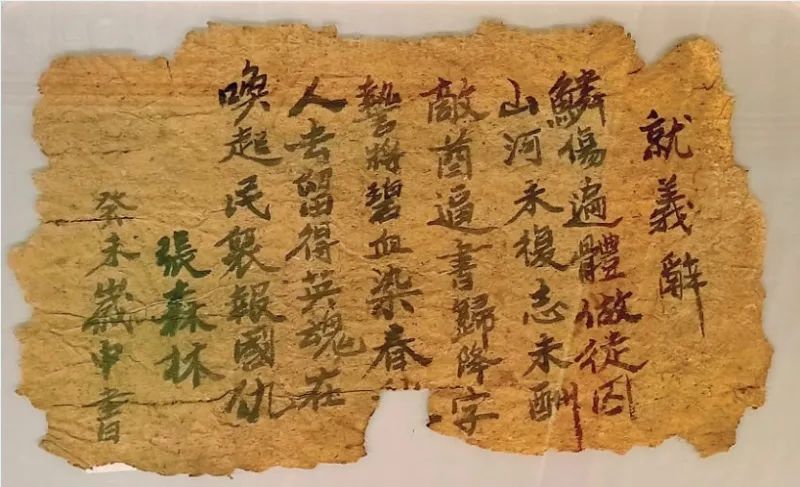 就義辭
鱗傷遍體做徒囚
山河未複志未酬
敵酋逼書歸降字
誓將碧血染春
人去留得英魂在
喚起民衆報國仇
張森林
癸未歲申書